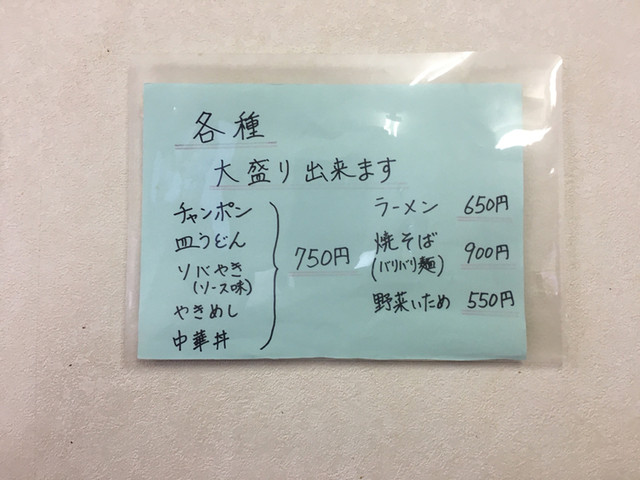 各種
大盛り出来ます
チャンポン
皿うどん
ソバやき
(ソース味)
やきめし
中華丼
750円
ラーメン 650円
焼そば 900円
(バリバリ麺)
野菜いため 550円